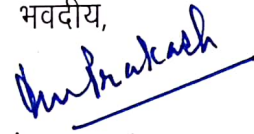 भवदीय,
Prakash